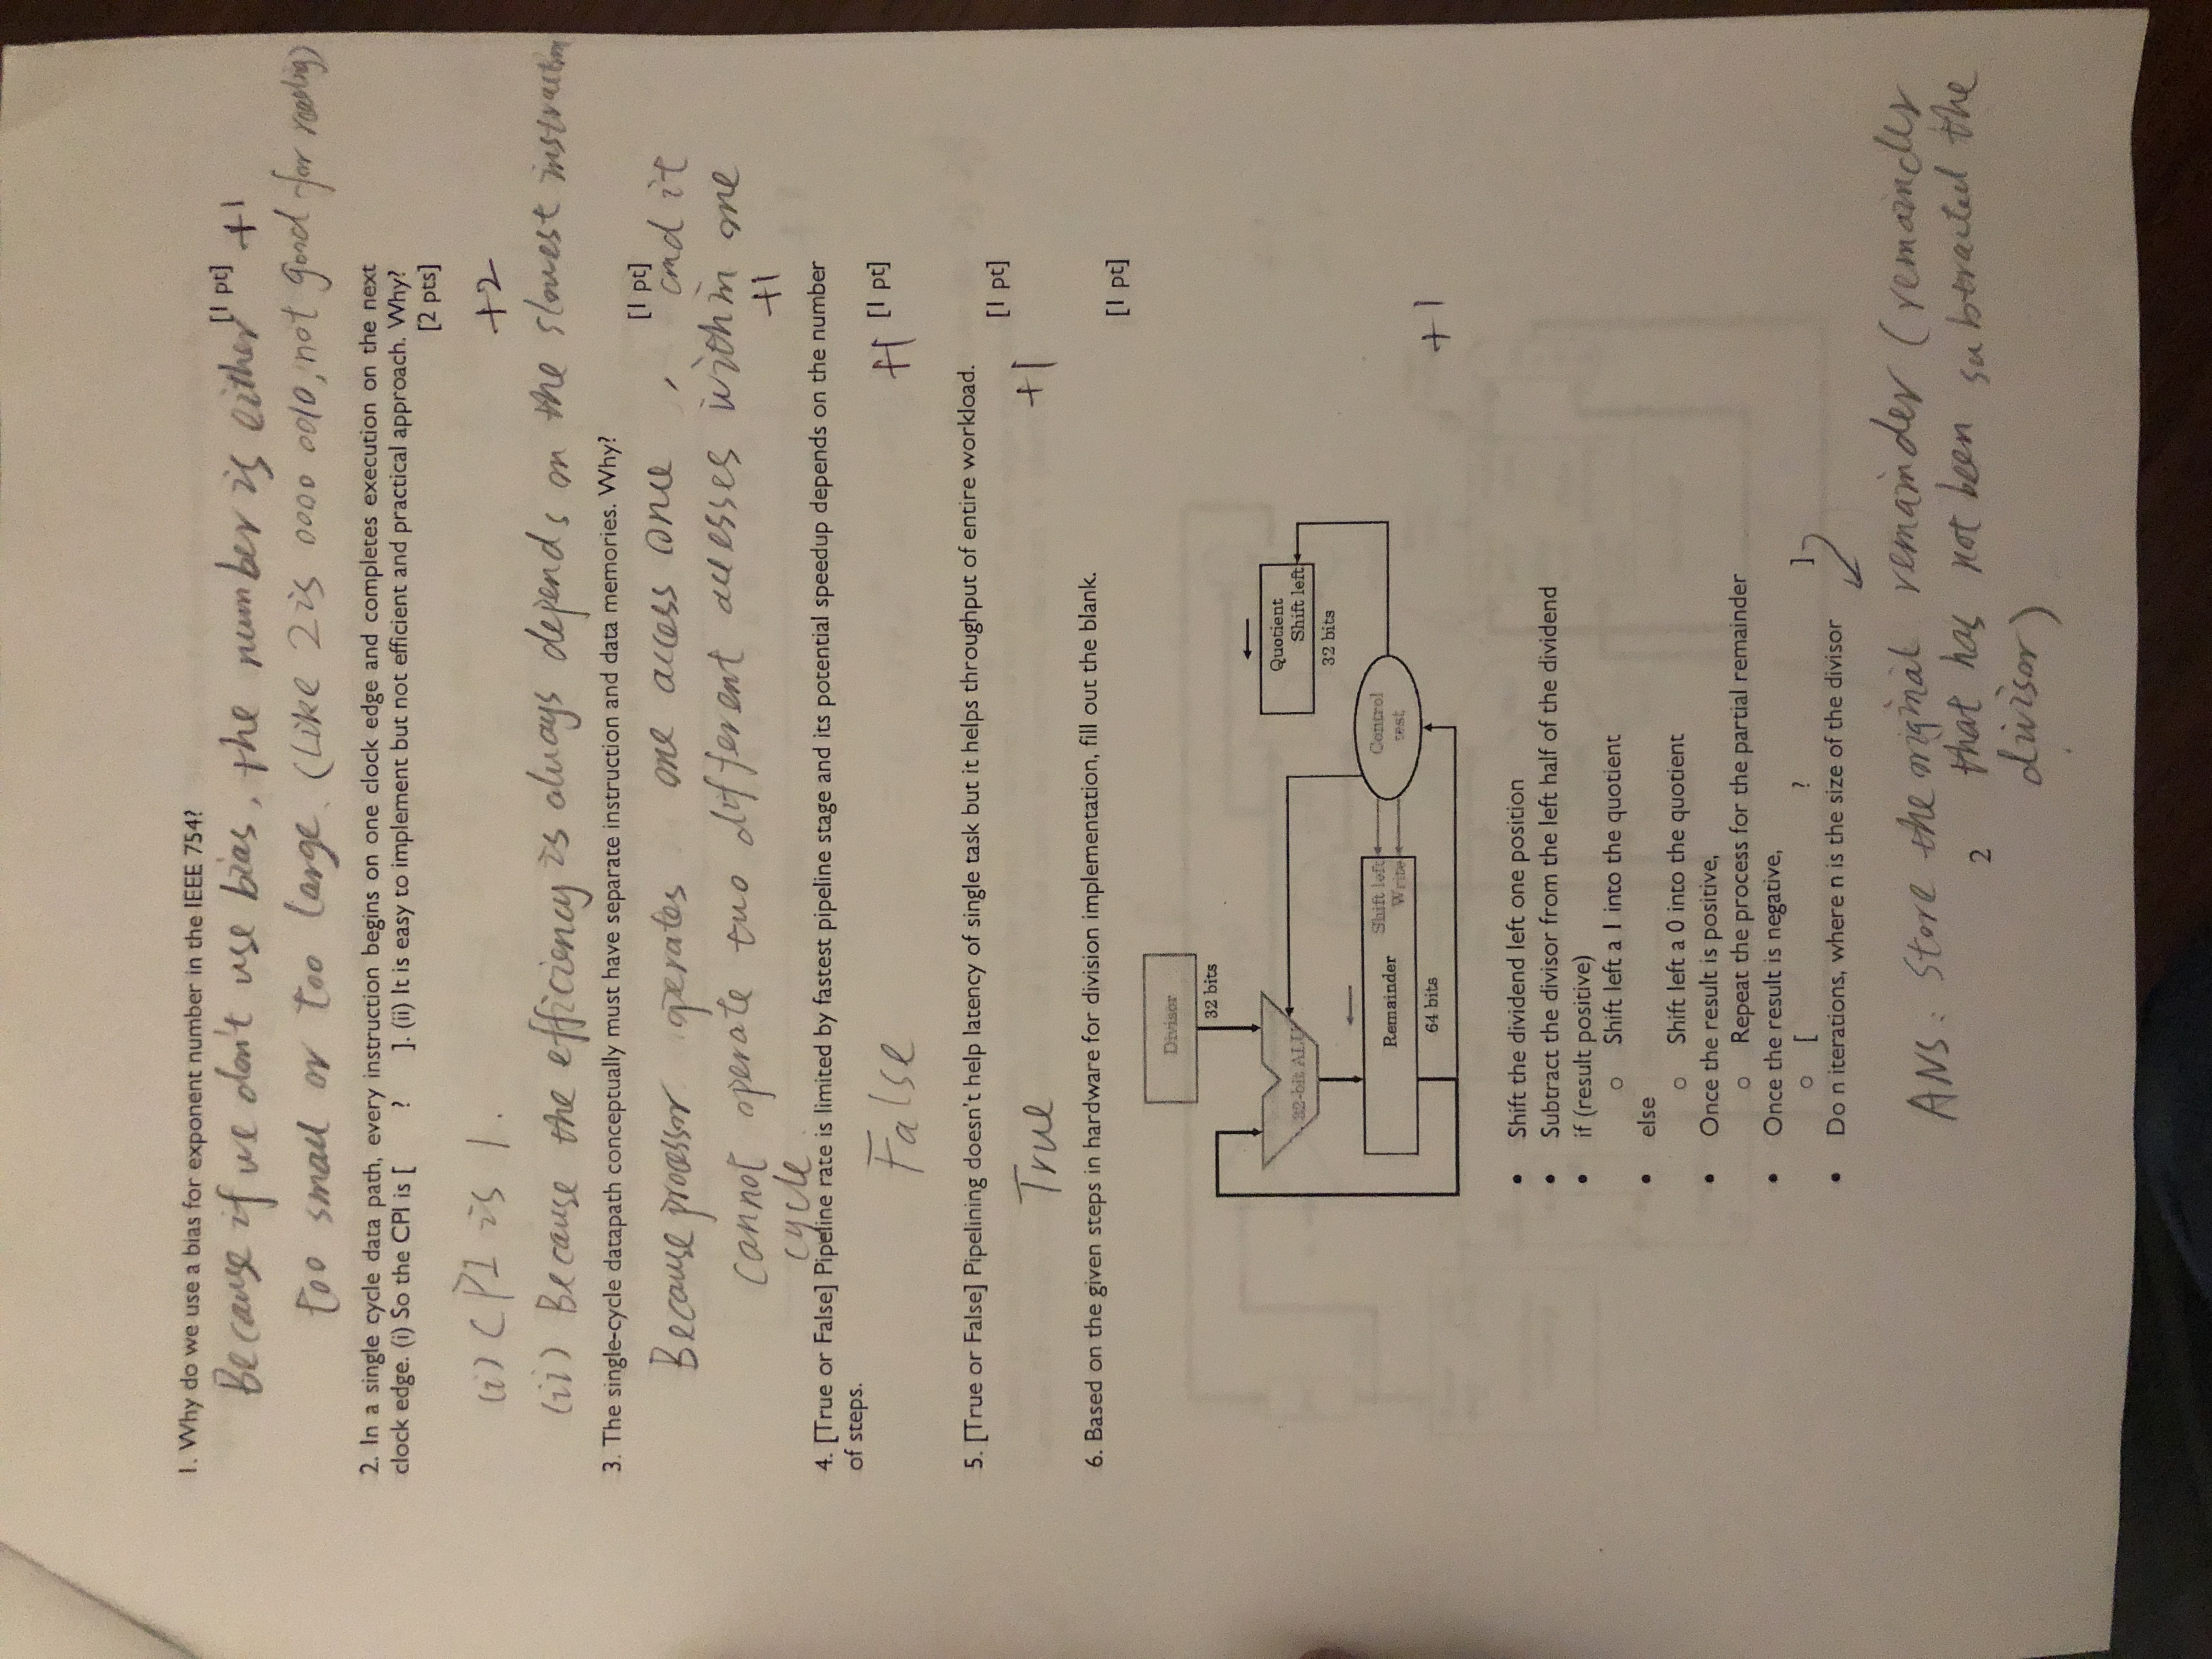 1. Why do we use a bias for exponent number in the IEEE 754?
[1 pt] +1
Because if we don't use bias, the number is either
too small or too large. (Like 2 is 0000 0010, not good for reading)
2. In a single cycle data path, every instruction begins on one clock edge and completes execution on the next
clock edge. (i) So the CPI is [ ? ]. (ii) It is easy to implement but not efficient and practical approach. Why?
[2 pts]
(i) CPI is 1.
+2
(ii) Because the efficiency is always depends on the slowest instruction
3. The single-cycle datapath conceptually must have separate instruction and data memories. Why?
[1 pt]
Because processor operates one access once, and it
cannot operate two different accesses within one
+1
cycle.
4. [True or False] Pipeline rate is limited by fastest pipeline stage and its potential speedup depends on the number
of steps.
False
+1 [1 pt]
5. [True or False] Pipelining doesn't help latency of single task but it helps throughput of entire workload.
[1 pt]
True
+1
6. Based on the given steps in hardware for division implementation, fill out the blank.
[1 pt]
Divisor
32 bits
Quotient
32-bit ALU
Shift left
32 bits
Shift left
Remainder
Write
Control
test
64 bits
+1
• Shift the dividend left one position
• Subtract the divisor from the left half of the dividend
• if (result positive)
o Shift left a 1 into the quotient
• else
o Shift left a 0 into the quotient
• Once the result is positive,
o Repeat the process for the partial remainder
• Once the result is negative,
o [ ? ]
• Do n iterations, where n is the size of the divisor
ANS: Store the original remainder (remainder
that has not been subtracted the
divisor)
2